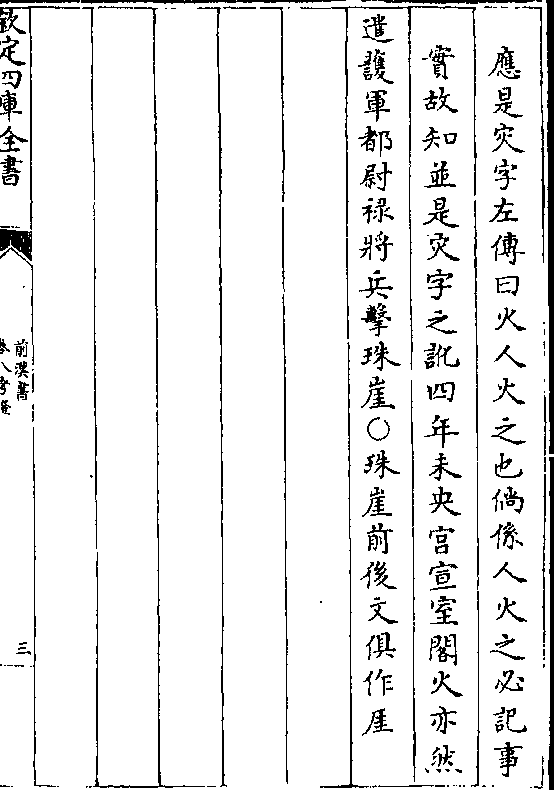 應是灾字左傳曰火人火之也倘係人火之必記事
實故知並是灾字之訛四年未央宫宣室閣火亦然
遣護軍都尉祿將兵擊珠崖○珠崖前後文俱作厓
欽定四庫全書
前漢書
卷八考證
三